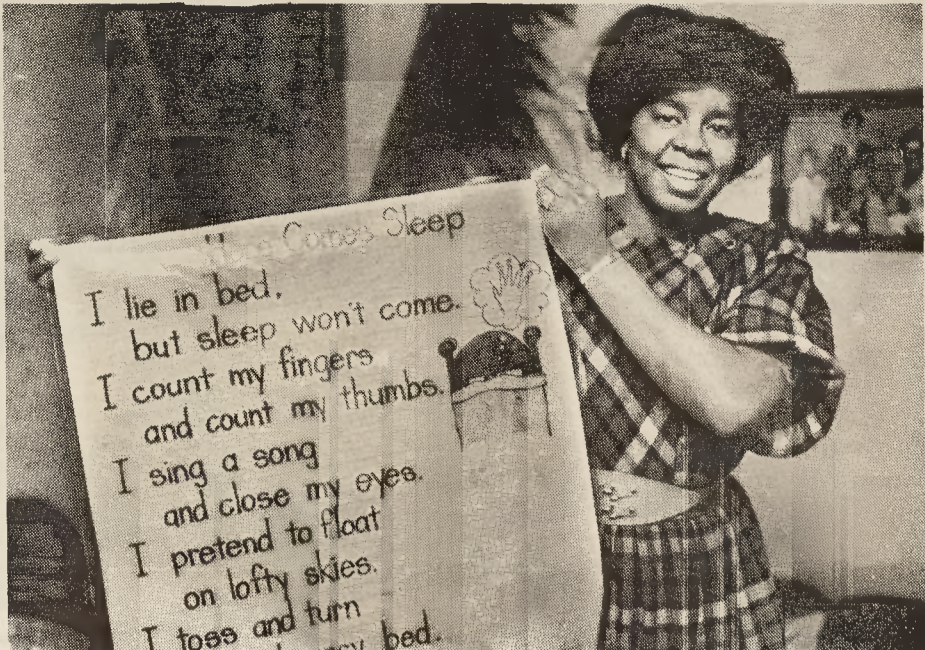 Here Comes Sleep
I lie in bed,
but sleep won't come.
I count my fingers
and count my thumbs.
I sing a song
and close my eyes.
I pretend to float
on lofty skies.
I toss and turn
my bed.